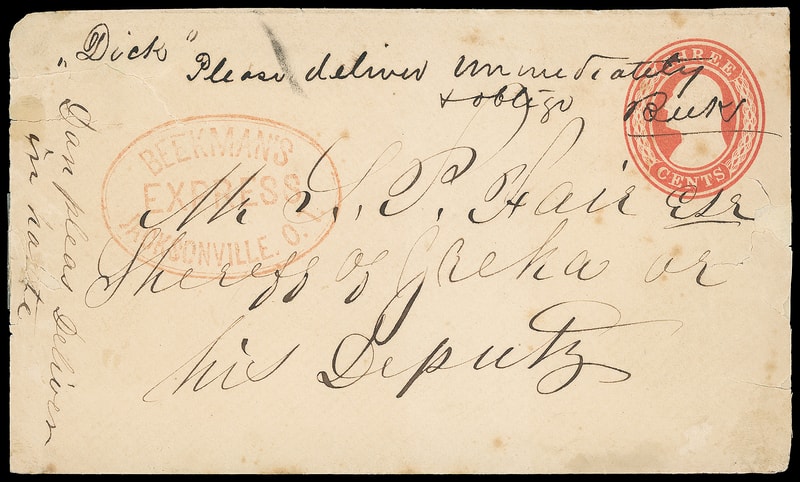 "Dick" Please deliver immediately
& oblige Beek
THREE
CENTS
BEEKMAN'S
EXPRESS
JACKSONVILLE. O. T.
Mr S. P. Fair Esq
Sheriff of Yreka or
his Deputy
Dan pleas Deliver
in haste